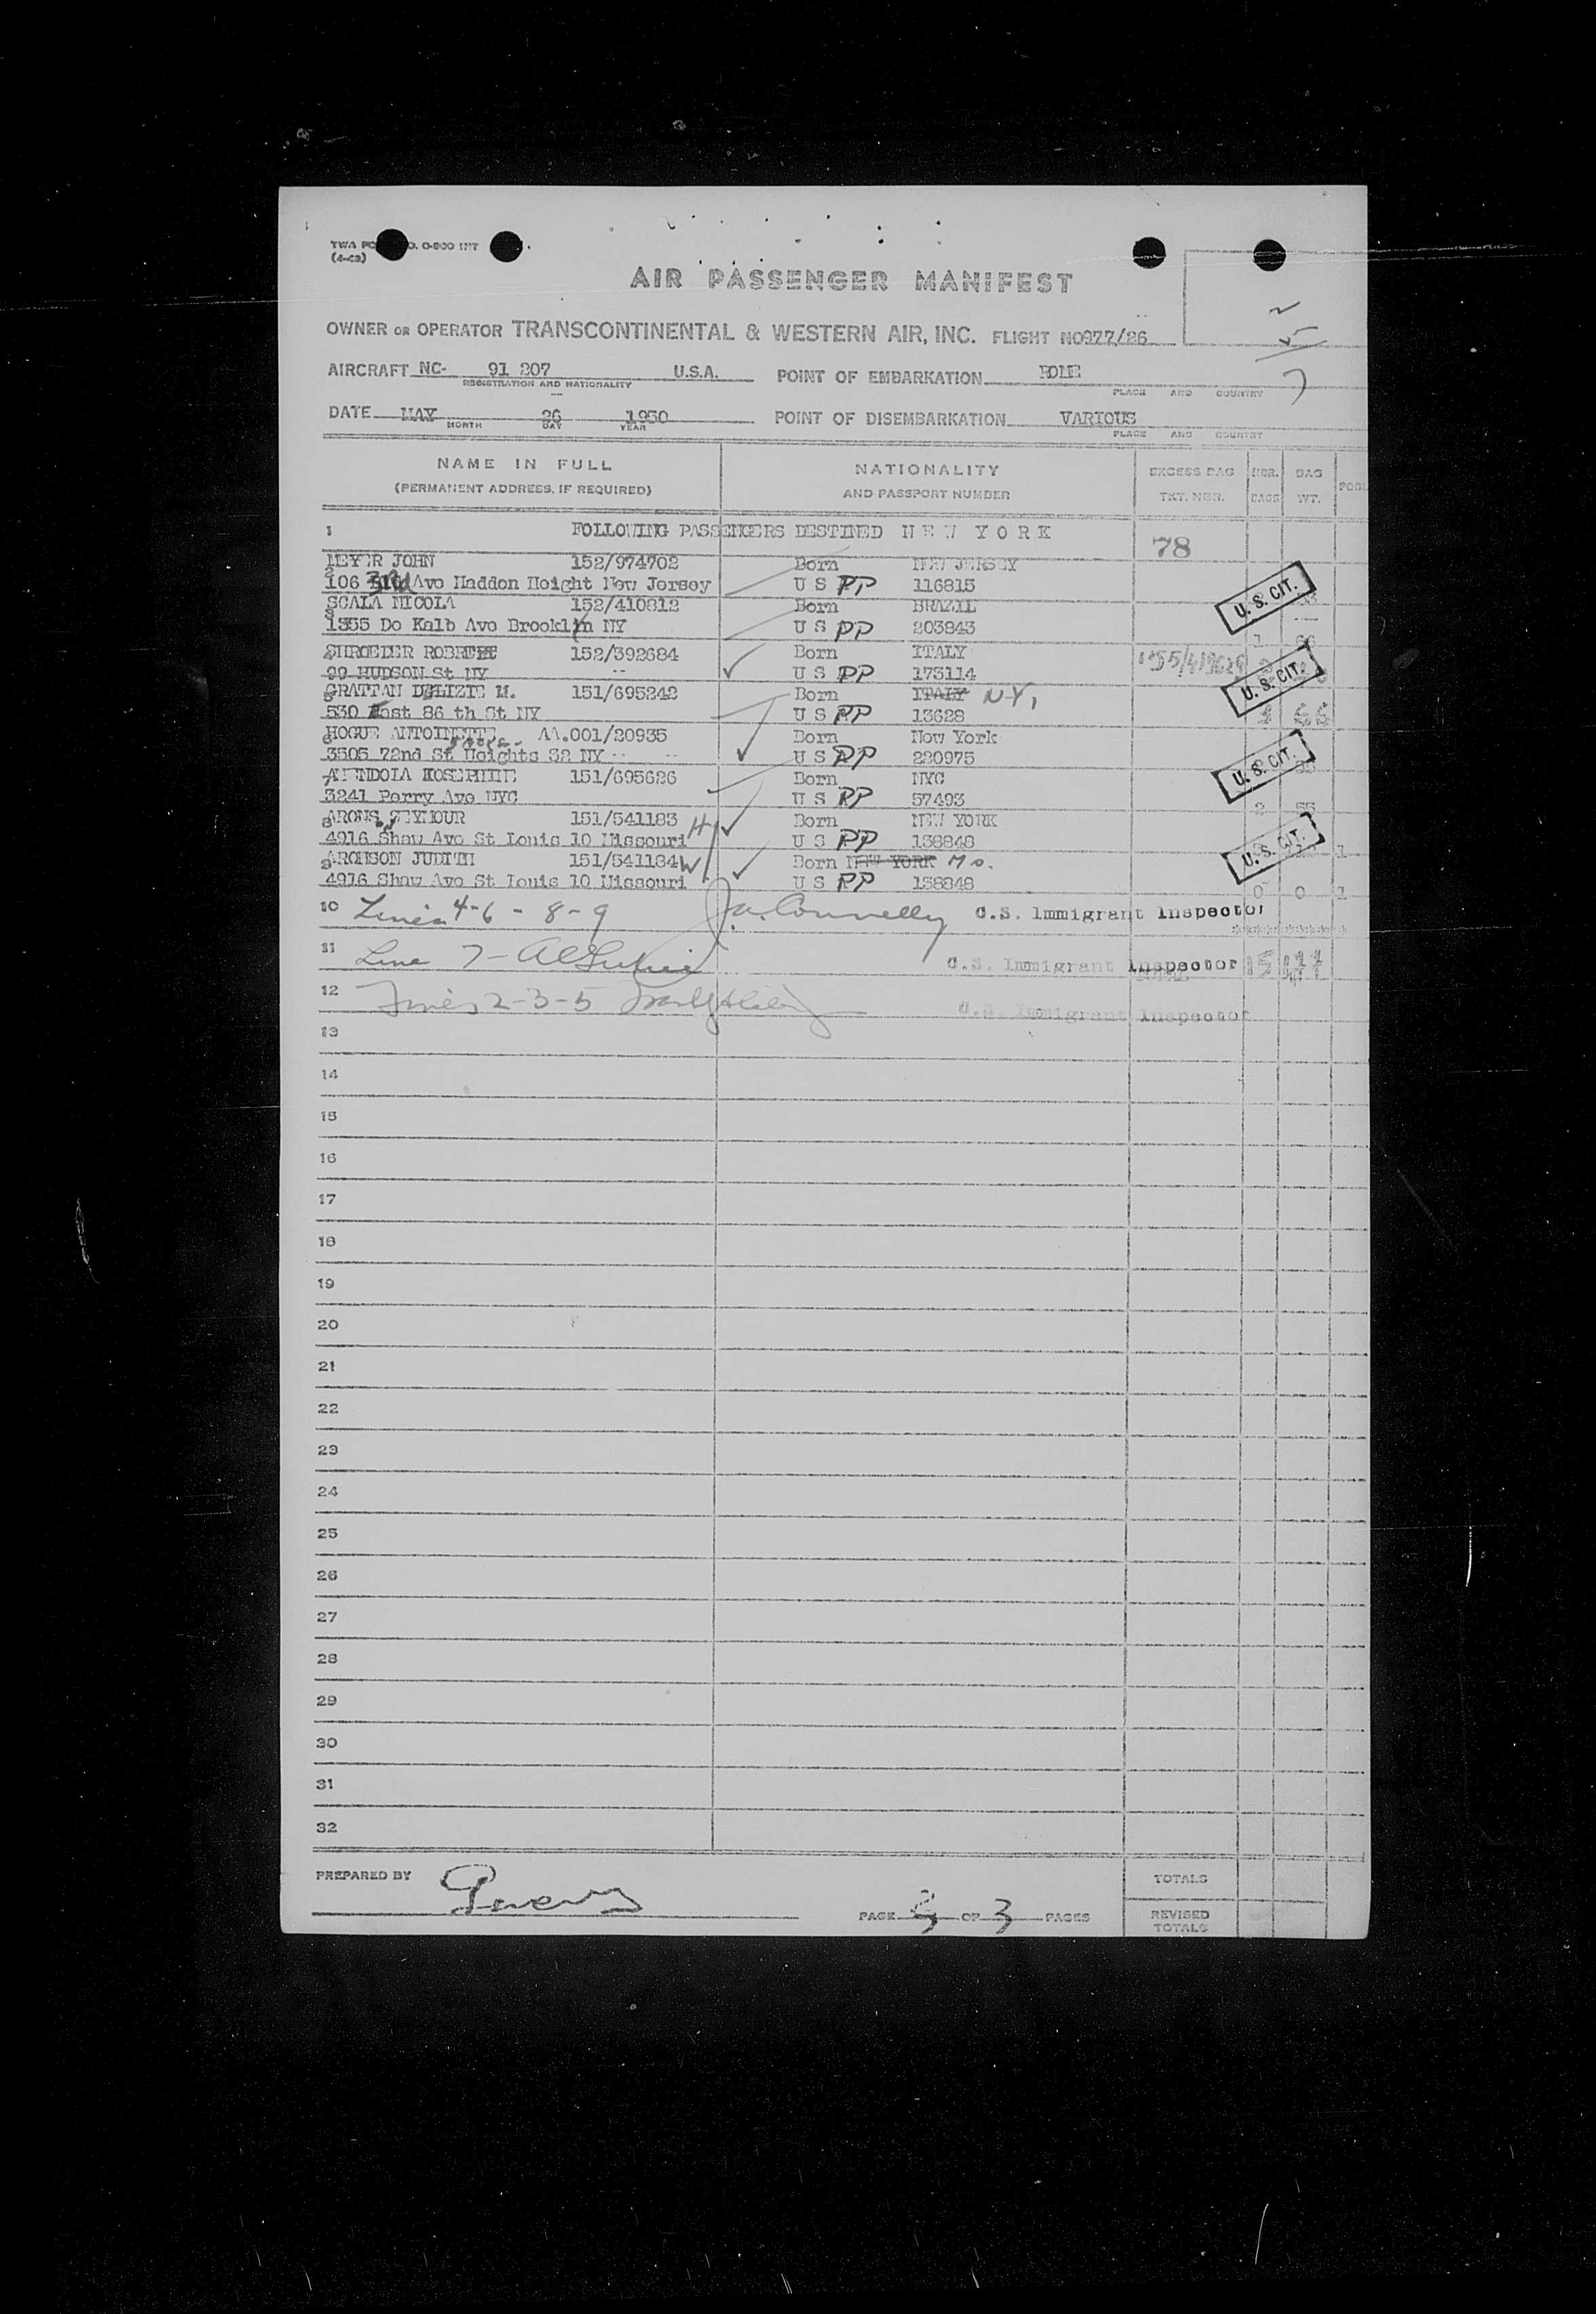 TWA O. O-800 INT
(4-48)
AIR PASSENGER MANIFEST
OWNER OR OPERATOR TRANSCONTINENTAL & WESTERN AIR, INC. FLIGHT NO 977/26
AIRCRAFT NC- 91 207 U.S.A. POINT OF EMBARKATION ROME
REGISTRATION AND NATIONALITY PLACE AND COUNTRY
DATE MAY 26 1950 POINT OF DISEMBARKATION VARIOUS
MONTH DAY YEAR PLACE AND COUNTRY
NAME IN FULL NATIONALITY EXCESS BAG NBR. BAG
(PERMANENT ADDRESS, IF REQUIRED) AND PASSPORT NUMBER TKT. NBR. BAGS WT. POOL
1 FOLLOWING PASSENGERS DESTINED N E W Y O R K
78
MEYER JOHN 152/974702 Born NEW JERSEY
2 106 3rd Ave Haddon Height New Jersey U S PP 116815 U. S. CIT.
SCALA NICOLA 152/410812 Born BRAZIL
3 1355 De Kalb Ave Brooklyn NY U S PP 203843
4 SHROEDER 152/392684 Born ITALY
99 HUDSON St NY U S PP 173114 U. S. CIT.
5 GRATTAN DELIZIE M. 151/695242 Born ITALY N.Y.
530 East 86 th St NY U S PP 13628 66
6 HOGUE ANTOINETTE AA.001/20935 Born New York
3505 72nd St Heights 32 NY U S PP 220975 U. S. CIT.
7 AMENDOLA JOSEPHINE 151/695626 Born NYC
3241 Perry Ave NYC U S PP 57493
8 ARONSON SEYMOUR 151/541183 H Born NEW YORK 2 55
4916 Shaw Ave St Louis 10 Missouri U S PP 158848 U. S. CIT. 1
9 ARONSON JUDITH 151/541184 W Born NEW YORK Mo.
4916 Shaw Ave St Louis 10 Missouri U S PP 158848 0 0 1
10 Lines 4-6-8-9 J.A. Connelly U.S. Immigrant Inspector
11 Line 7- U.S. Immigrant Inspector 15
12 Lines 2-3-5 U.S. Immigrant Inspector
13
14
15
16
17
18
19
20
21
22
23
24
25
26
27
28
29
30
31
32
PREPARED BY TOTALS
PAGE 3 OF 3 PAGES REVISED
TOTALS